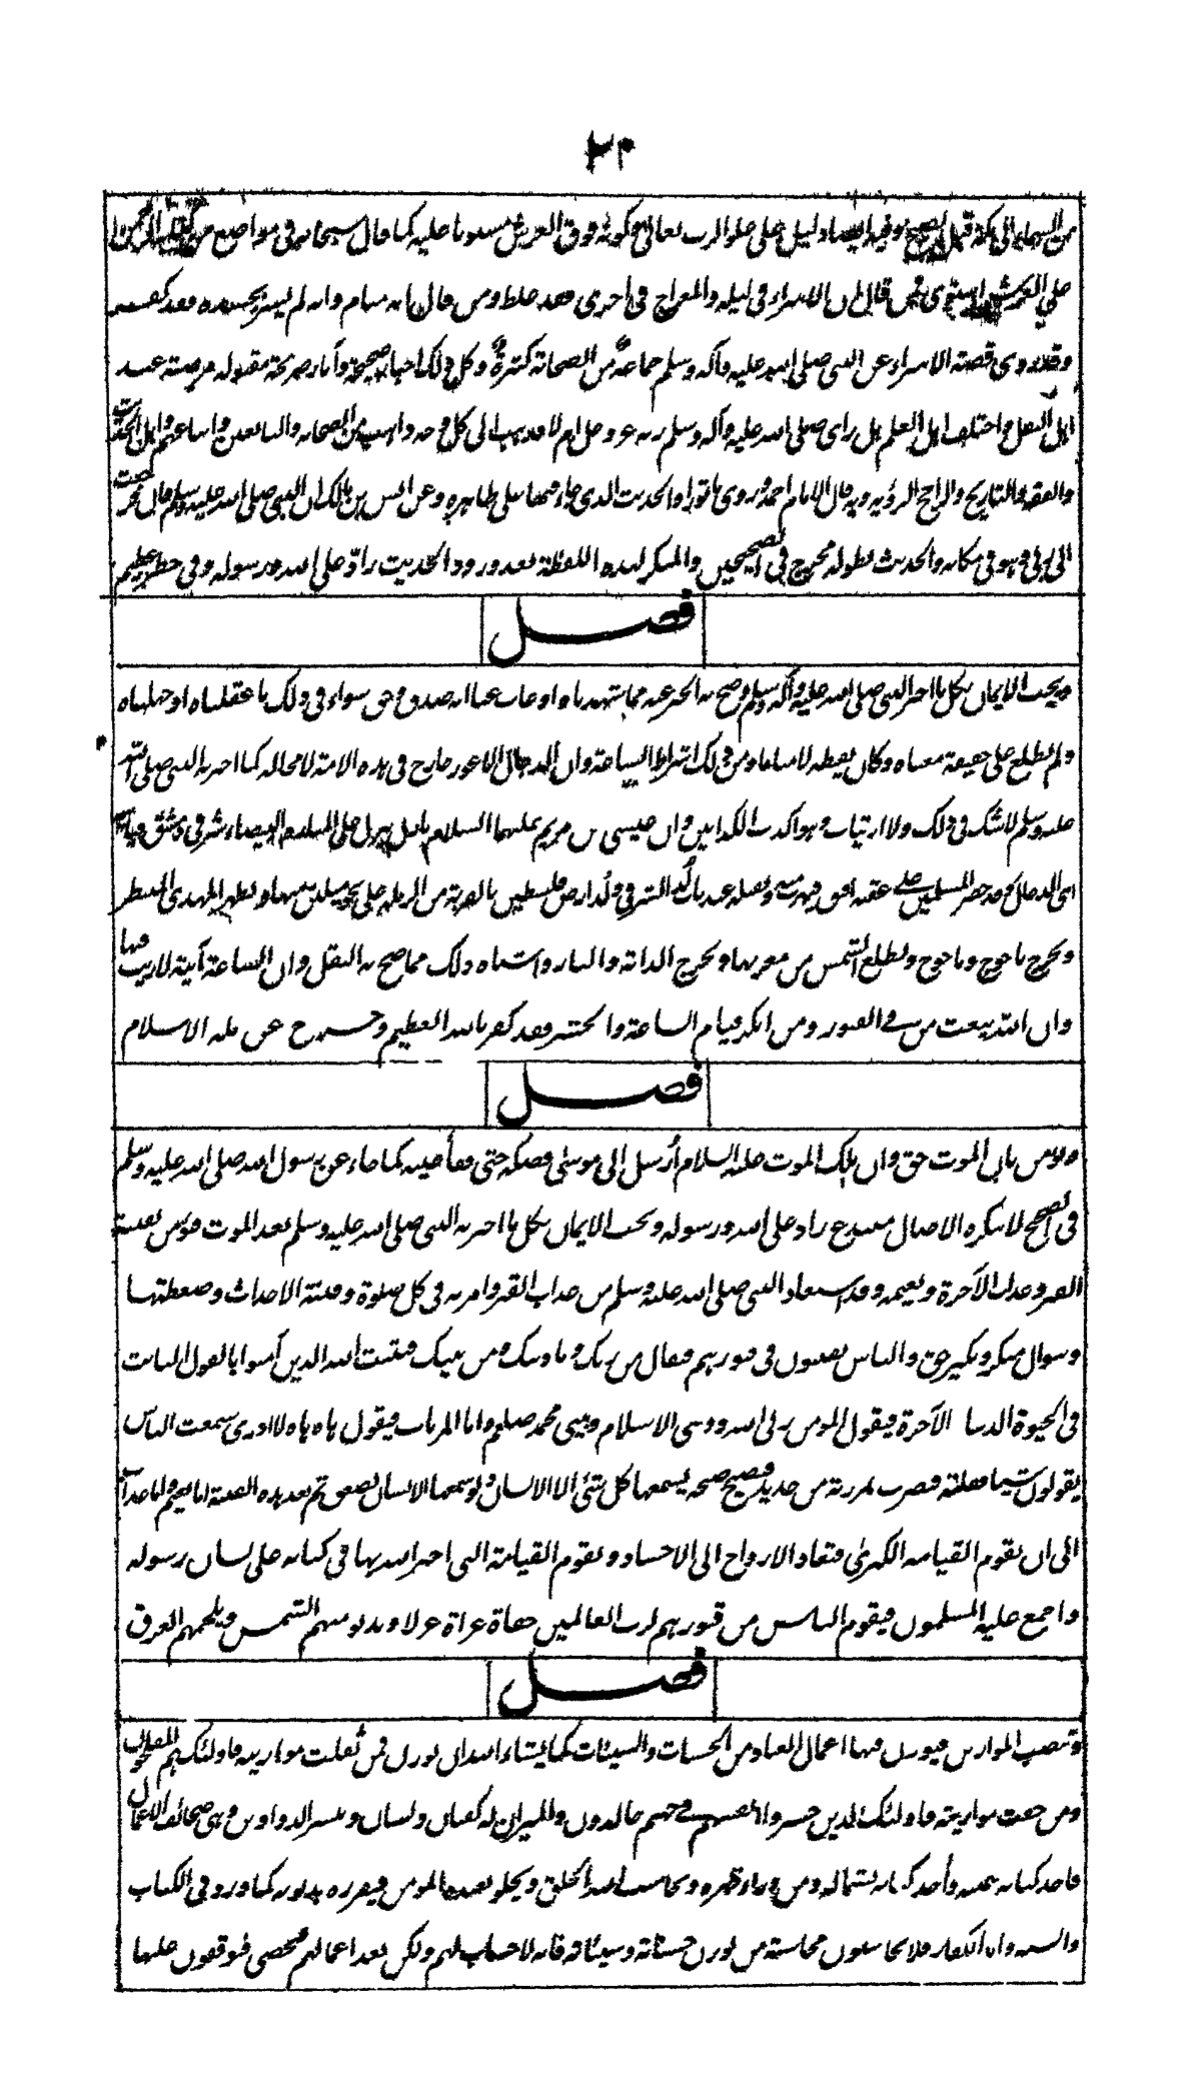 ٢٣
من السماء الى مكة قبل الصبح وفيه ايضا دليل على علو الرب تعالى وكونه فوق العرش مستويا عليه كما قال سبحانه فى مواضع من كتابه الرحمن
على العرش استوى فمن قال ان الاسراء فى ليلة والمعراج فى اخرى فقد غلط ومن قال انه منام وانه لم يسر بجسده فقد كفر
وقد روى قصة الاسراء عن النبى صلى الله عليه وآله وسلم جماعة من الصحابة كثيرة وكل ذلك اخبار صحيحة وآثار صريحة مقبولة مرضية عند
اهل النقل واختلف اهل العلم هل رأى صلى الله عليه وآله وسلم ربه عز وجل ام لا فذهب الى كل وجه ذاهب من الصحابة والتابعين واتباعهم واهل الحديث
والفقه والتاريخ والراجح الرؤية وبه قال الامام احمد وروى ماثورا والحديث الذى جاء فيها على ظاهره وعن انس بن مالك ان النبى صلى الله عليه وسلم قال فرجعت
الى ربى وهو فى مكانه والحديث بطوله مخرج فى الصحيحين والمنكر لهذه اللفظة بعد ورود الحديث راد على الله ورسوله وفى خطر عظيم
فصل
ويجب الايمان بكل ما اخبر النبى صلى الله عليه وآله وسلم وصح به الخبر عنه مما شهدناه او غاب عنا انه صدق وحق سواء فى ذلك ما عقلناه او جهلناه
ولم نطلع على حقيقة معناه وكان يقظة لا مناما ومن ذلك اشراط الساعة وان الدجال الاعور خارج فى هذه الامة لا محالة كما اخبر به النبى صلى الله
عليه وسلم لا شك فى ذلك ولا ارتياب وهو اكذب الكذابين وان عيسى بن مريم عليهما السلام نازل ينزل على المنارة البيضاء شرقى دمشق
الدجال وقد حصر المسلمين على عقبة افيق فيهرب منه ويقتله عند باب لد الشرقى ولد ارض فلسطين بالقرب من الرملة على نحو ميلين منها ويظهر المهدى المنتظر
ويخرج ياجوج وماجوج وتطلع الشمس من مغربها وتخرج الدابة والنار واشباه ذلك مما صح به النقل وان الساعة آتية لا ريب فيها
وان الله يبعث من فى القبور ومن انكر قيام الساعة والحشر فقد كفر بالله العظيم وخرج عن ملة الاسلام
فصل
ونؤمن بان الموت حق وان ملك الموت عليه السلام أرسل الى موسى فصكه حتى فقأ عينه كما جاء عن رسول الله صلى الله عليه وسلم
فى الصحيح لا ينكره الا ضال مبتدع راد على الله ورسوله ويجب الايمان بكل ما اخبر به النبى صلى الله عليه وسلم بعد الموت فنؤمن بفتنة
القبر وعذاب الآخرة ونعيمه وقد استعاذ النبى صلى الله عليه وسلم من عذاب القبر وامر به فى كل صلوة وفتنة الاحداث وضغطتها
وسوال منكر ونكير حق والناس يفتنون فى قبورهم فيقال من ربك وما دينك ومن نبيك فيثبت الله الذين آمنوا بالقول الثابت
فى الحيوة الدنيا الآخرة فيقول المومن ربى الله ودينى الاسلام ونبيى محمد صلعم واما المرتاب فيقول هاه هاه لا ادرى سمعت الناس
يقولون شيئا فقلته فيضرب بمرزبة من حديد فيصيح صيحة يسمعها كل شئ الا الانسان ولو سمعها الانسان لصعق ثم بعد هذه الفتنة اما نعيم واما عذاب
الى ان تقوم القيامة الكبرى فتعاد الارواح الى الاجساد وتقوم القيامة التى اخبر الله بها فى كتابه على لسان رسوله
واجمع عليه المسلمون فيقوم الناس من قبورهم لرب العالمين حفاة عراة غرلا وتدنو منهم الشمس ويلجمهم العرق
فصل
وتنصب الموازين فيوزن فيها اعمال العباد من الحسنات والسيئات كما يشاء الله ان توزن فمن ثقلت موازينه فاولئك هم المفلحون
ومن خفت موازينه فاولئك الذين خسروا انفسهم فى جهنم خالدون وللميزان له كفتان ولسان وتنشر الدواوين وهى صحائف الاعمال
فاخذ كتابه بيمينه وآخذ كتابه بشماله ومن وراء ظهره ويحاسب الله الخلق ويخلو بعبده المومن فيقرره بذنوبه كما ورد فى الكتاب
والسنة واما الكفار فلا يحاسبون محاسبة من توزن حسناته وسيئاته فانه لا حسنات لهم ولكن تعد اعمالهم فتحصى فيوقفون عليها